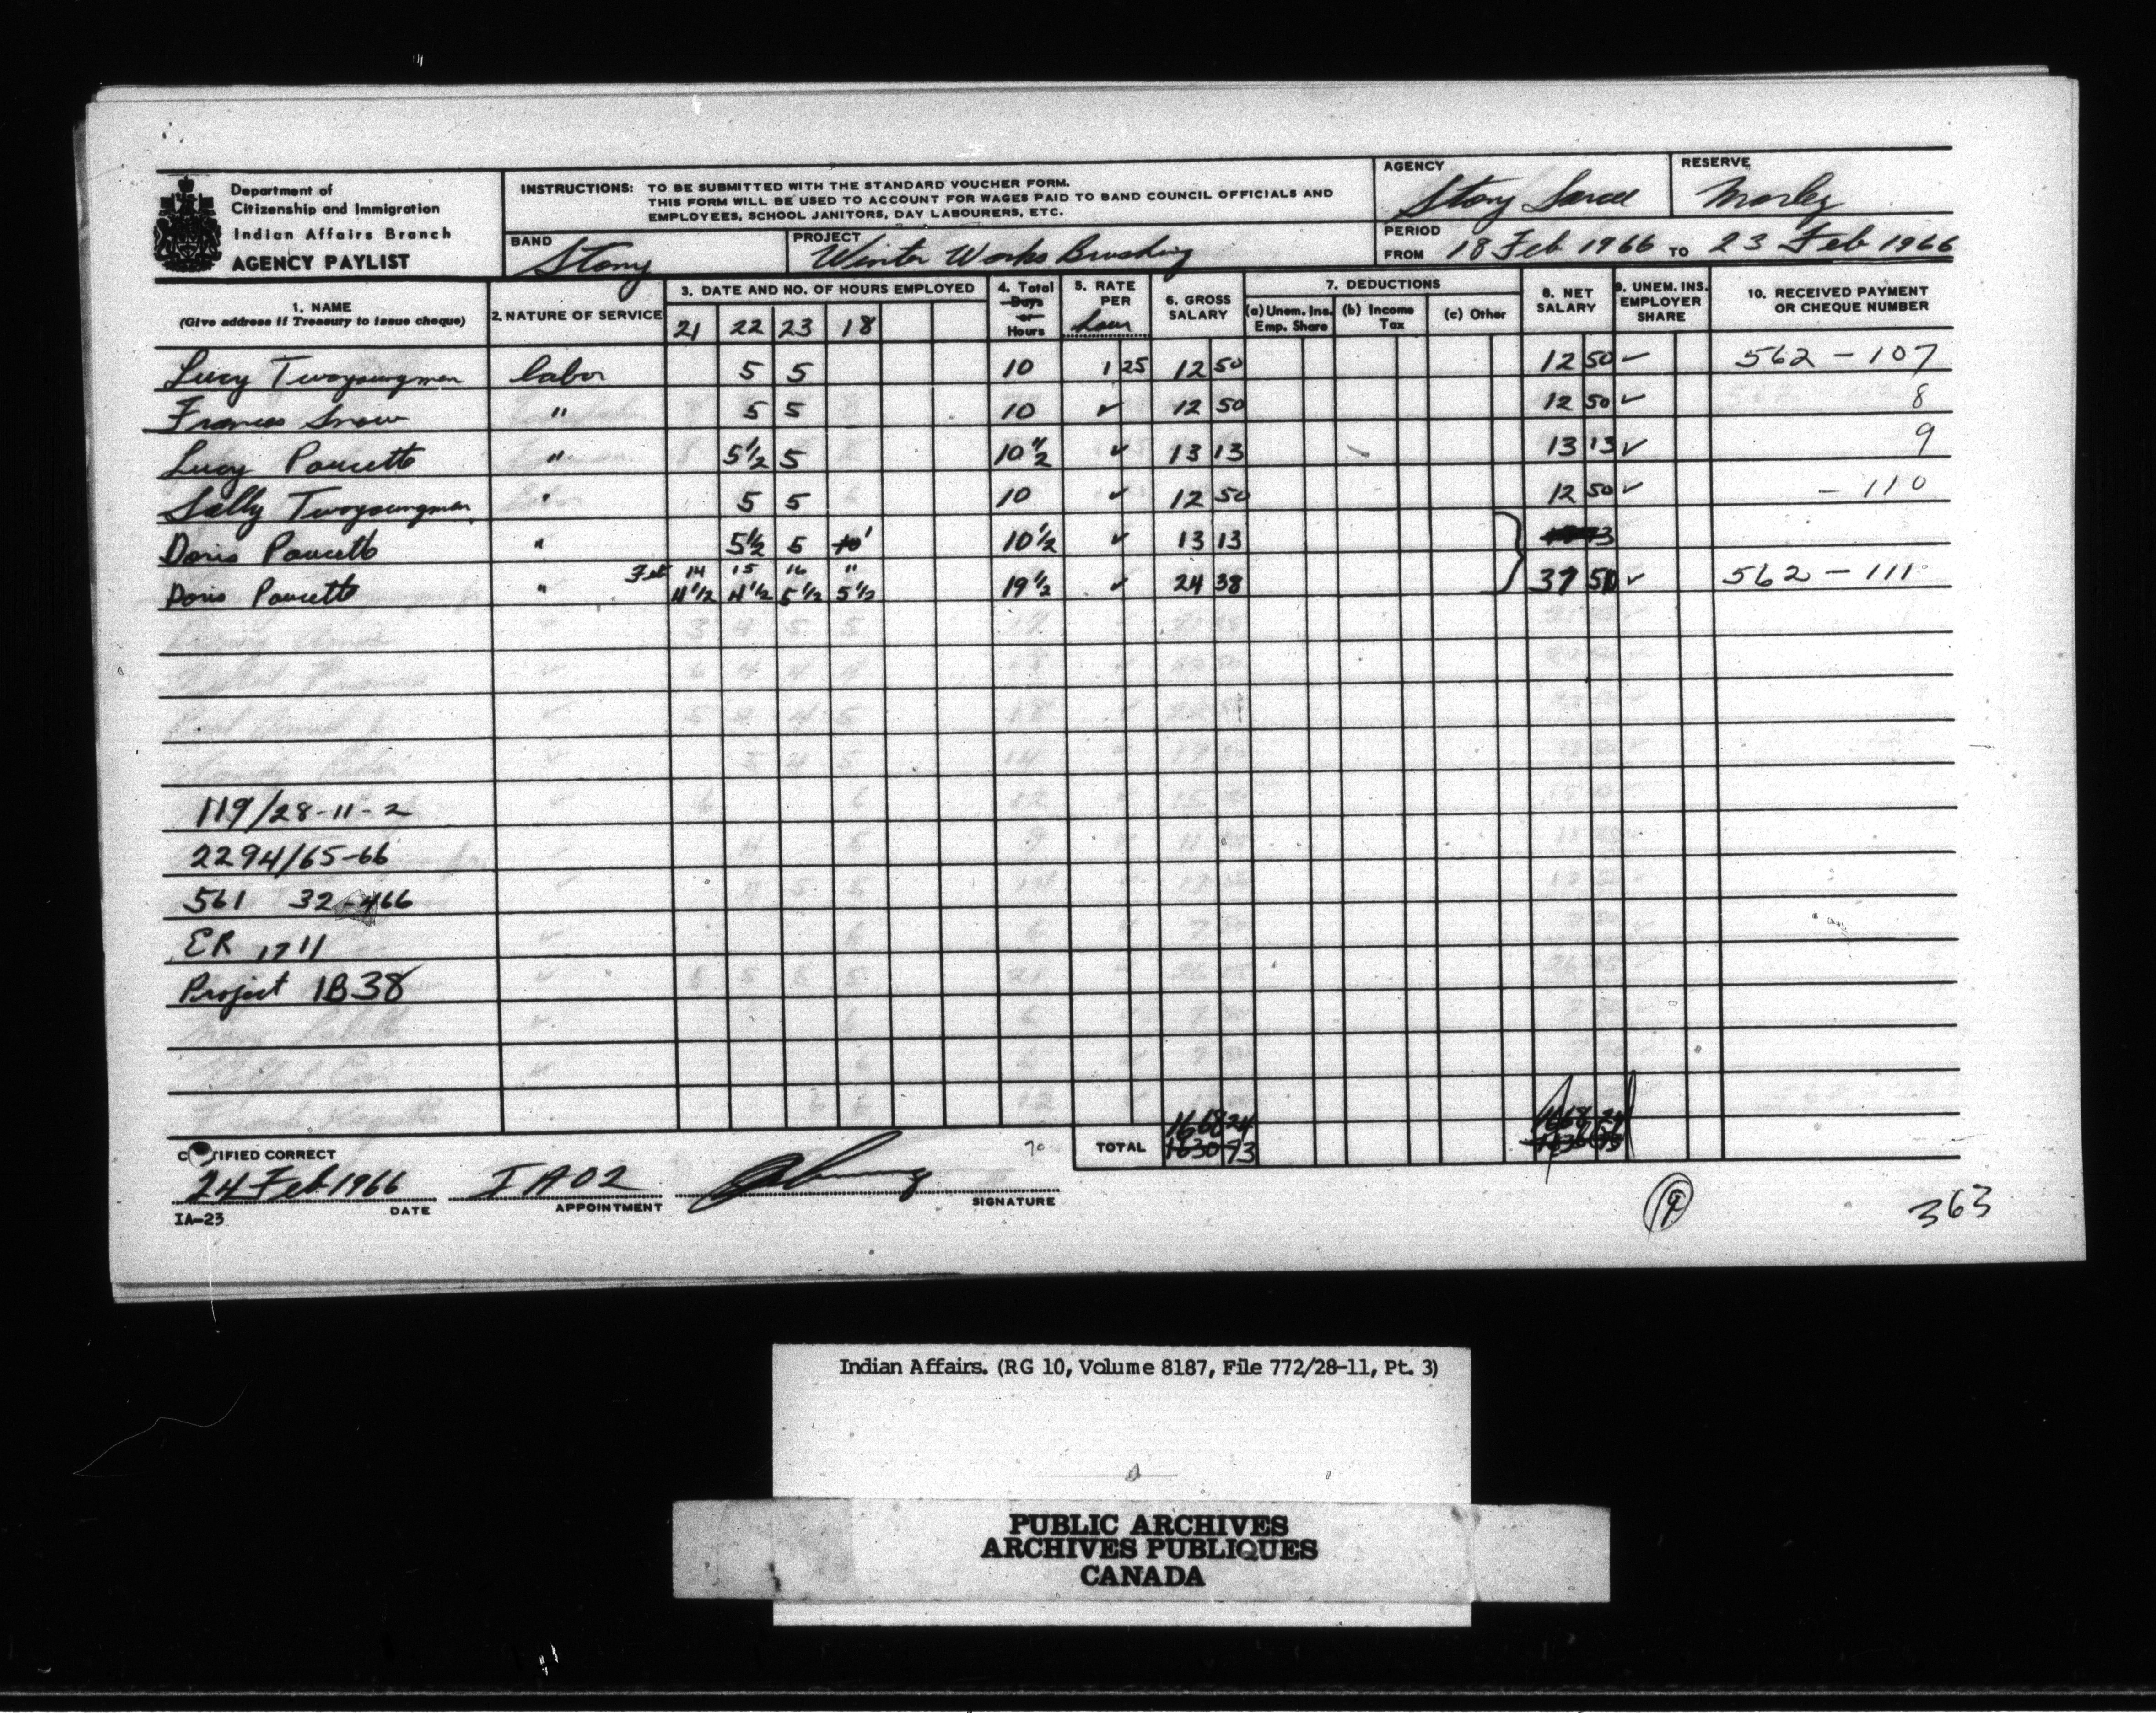 Department of
Citizenship and Immigration
Indian Affairs Branch
AGENCY PAYLIST
INSTRUCTIONS: TO BE SUBMITTED WITH THE STANDARD VOUCHER FORM.
THIS FORM WILL BE USED TO ACCOUNT FOR WAGES PAID TO BAND COUNCIL OFFICIALS AND
EMPLOYEES, SCHOOL JANITORS, DAY LABOURERS, ETC.
AGENCY Stony Sarcee
RESERVE Morley
BAND Stony
PROJECT Winter Works Brushing
PERIOD FROM 18 Feb 1966 TO 23 Feb 1966
1. NAME (Give address if Treasury to issue cheque)
2. NATURE OF SERVICE
3. DATE AND NO. OF HOURS EMPLOYED
21 22 23 18
4. Total Days or Hours
5. RATE PER hour
6. GROSS SALARY
7. DEDUCTIONS
(a) Unem. Ins. Emp. Share
(b) Income Tax
(c) Other
8. NET SALARY
9. UNEM. INS. EMPLOYER SHARE
10. RECEIVED PAYMENT OR CHEQUE NUMBER
Lucy Twoyoungmen labor 5 5 10 1 25 12 50 12 50 ✓ 562 - 107
Frances Snow " 5 5 10 ✓ 12 50 12 50 ✓ 8
Lucy Poucette " 5½ 5 10½ ✓ 13 13 13 13 ✓ 9
Sally Twoyoungmen " 5 5 10 ✓ 12 50 12 50 ✓ - 110
Doris Poucette " 5½ 5 10½ ✓ 13 13
Feb 14 15 16 11
Doris Poucette " 4½ 4½ 5½ 5½ 19½ ✓ 24 38 37 50 ✓ 562 - 111
119/28-11-2
2294/65-66
561 32-466
ER 1711
Project 1B38
1668 24 1668 24
TOTAL 1630 73
CERTIFIED CORRECT
24 Feb 1966 IA02
DATE APPOINTMENT SIGNATURE
IA-23
363
Indian Affairs. (RG 10, Volume 8187, File 772/28-11, Pt. 3)
PUBLIC ARCHIVES
ARCHIVES PUBLIQUES
CANADA